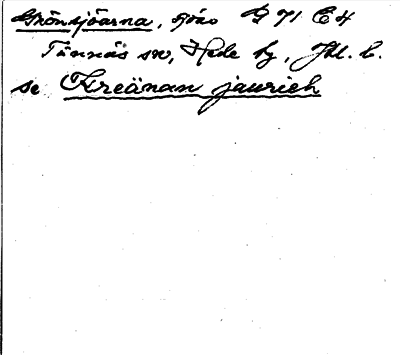 Gröndjöarna, sjöar G 71 E 4
Tännäs sn, Hede tg, Jtl. l.
se Kreänan jaurieh